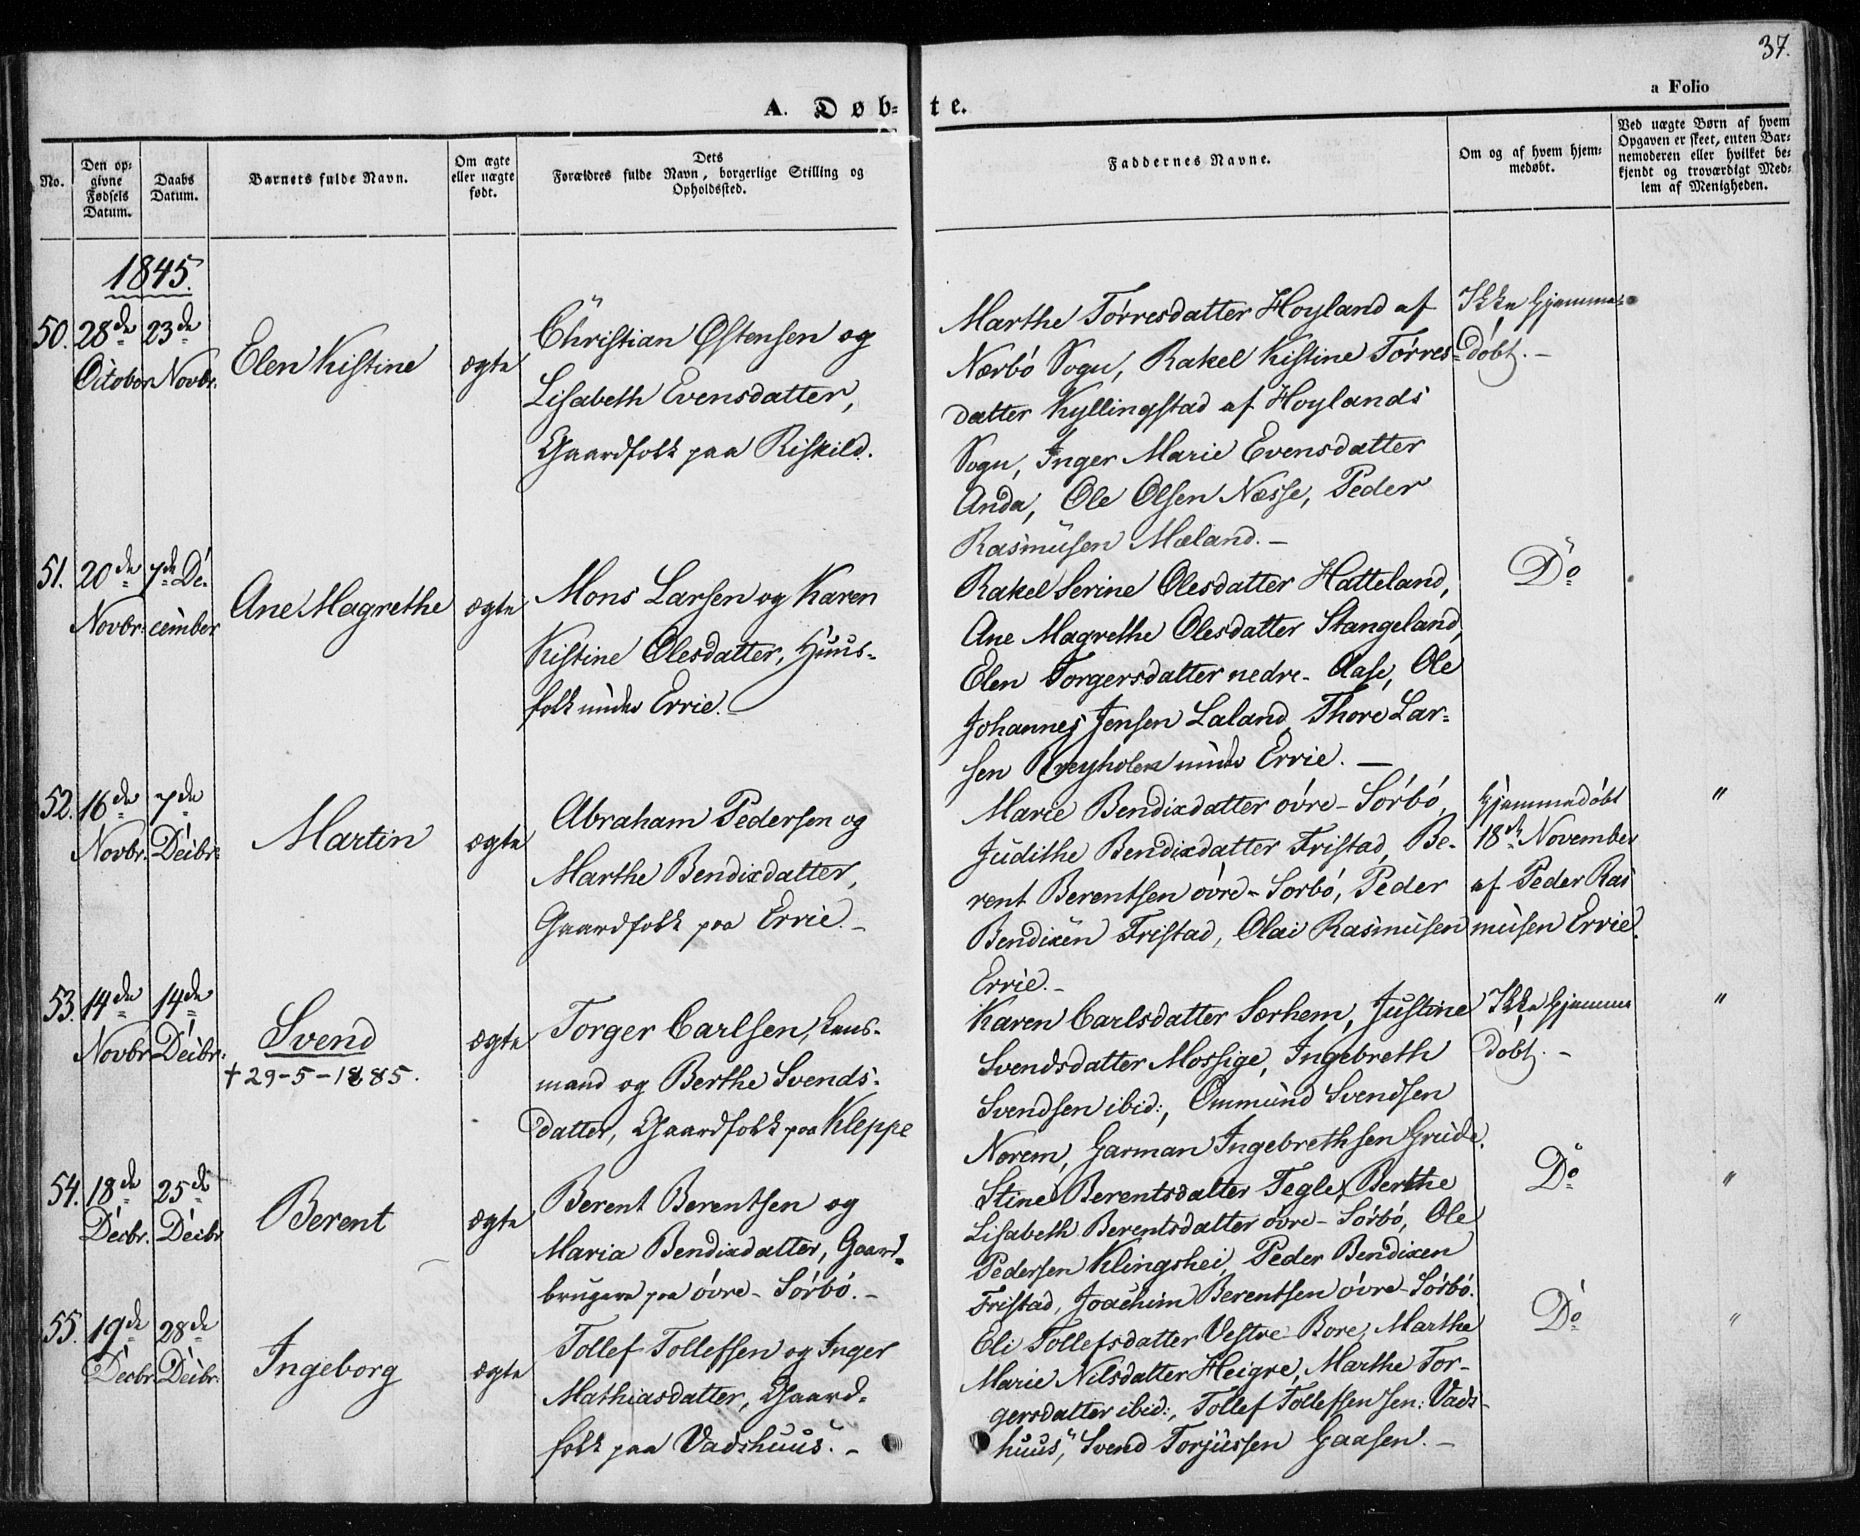 37.
a Folio
A. Døb-te.
No.
Den op-
givne
Fødsels
Datum.
Daabs
Datum.
Barnets fulde Navn.
Om ægte
eller uægte
født.
Dets
Forældres fulde Navn, borgerlige Stilling og
Opholdssted.
Faddernes Navne.
Om og af hvem hjem-
medøbt.
Ved uægte Børn af hvem
Opgaven er skeet, enten Bar-
nemoderen eller hvilket be-
kjendt og troværdigt Med-
lem af Menigheden.
1845.
50.
28de
October
23de
Novbr.
Elen Kistine
ægte
Christian Østensen og
Lisabeth Evensdatter,
Gaardfolk paa Riskild.
Marthe Tørresdatter Hoyland af
Nærbö Sogn, Rakel Kistine Tørres-
datter Kyllingstad af Hoylands
Sogn, Inger Marie Evensdatter
Anda, Ole Olsen Næsse, Peder
Rasmusen Mæland. –
Ikke hjemme-
døbt. –
51.
20de
Novbr.
7de De-
cember
Ane Magrethe
ægte
Mons Larsen og Karen
Kistine Olesdatter, Huus-
folk under Errie. –
Rakel Serine Olesdatter Hatteland,
Ane Magrethe Olesdatter Stangeland,
Elen Torgersdatter nedre-Aase, Ole
Johannes Jensen Laland, Thore Lar-
sen under Errie. –
Do
52.
16de
Novbr.
7de
Decbr.
Martin
ægte
Abraham Pedersen og
Marthe Bendixdatter,
Gaardfolk paa Errie. –
Marie Bendixdatter övre-Sörbö,
Judithe Bendixdatter Fristad, Be-
rent Berentsen övre-Sorbö, Peder
Bendixen Fristad, Olai Rasmusen
Errie. –
Hjemmedöbt
18de November
af Peder Ras
musen Errie.
"
53.
14de
Novbr.
14de
Decbr.
Svend
† 29-5-1885.
ægte
Torger Carlsen, Lens-
mand og Berthe Svends-
datter, Gaardfolk paa Kleppe
Karen Carlsdatter Særhem, Justine
Svendsdatter Mossige, Ingebreth
Svendsen ibid:, Ommund Svendsen
Norem, Garman Ingebrethsen Grude.
Ikke hjemme
döbt. –
"
54.
18de
Decbr.
25de
Decbr
Berent
ægte
Berent Berentsen og
Maria Bendixdatter, Gaard-
brugere paa övre-Sörbö. –
Stine Berentsdatter Tegle, Berthe
Lisabeth Berentsdatter övre-Sörbö, Ole
Pedersen Klingshei, Peder Bendixen
Fristad, Joachim Berentsen övre-Sörbö.
Do
"
55.
19de
Decbr
28de
Decbr.
Ingeborg
ægte
Tollef Tollefsen og Inger
Mathiasdatter, Gaard-
folk paa Vadshuus. –
Eli Tollefsdatter Vestre Bore, Marthe
Marie Nilsdatter Heigre, Marthe Tor-
gersdatter ibid:, Tollef Tollefsen sen: Vads-
huus, Svend Torjussen Gaasen. –
Do
"